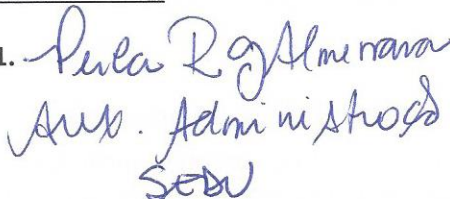 1. Perla R G Almenara
Aux. Administração
SEDU